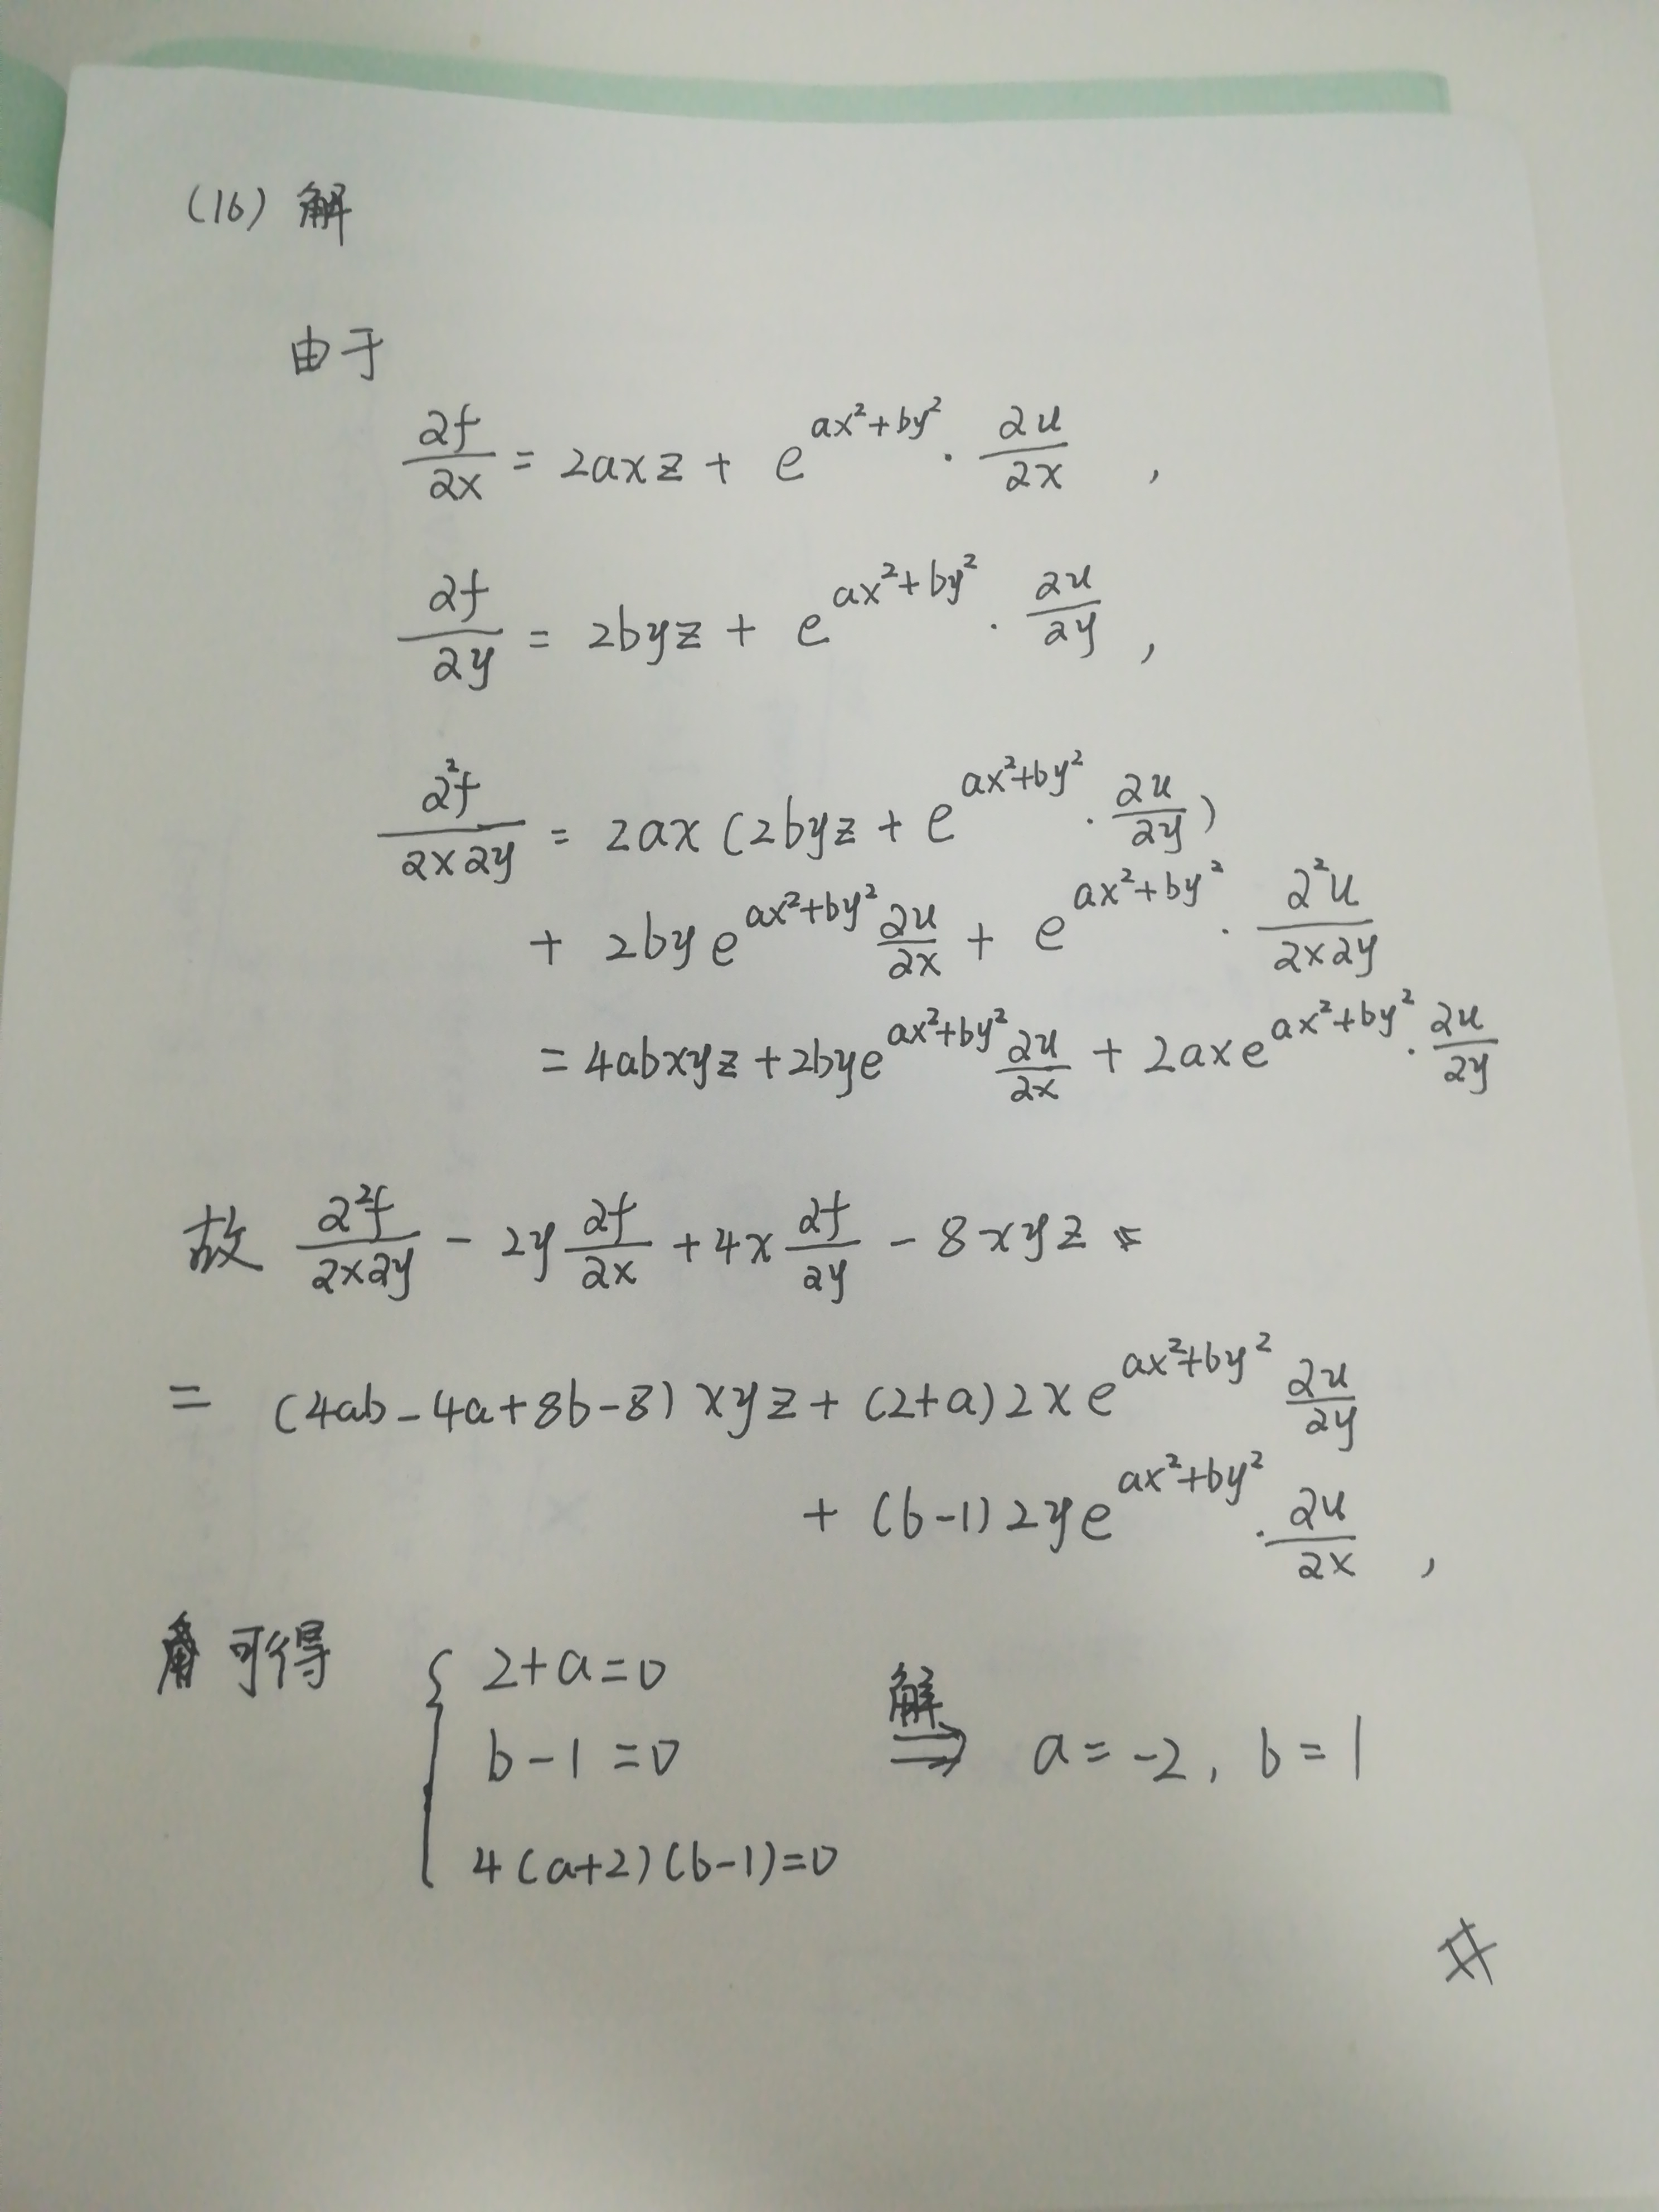 (16) 解
由于
∂f/∂x = 2axz + e^{ax²+by²} · ∂u/∂x ,
∂f/∂y = 2byz + e^{ax²+by²} · ∂u/∂y ,
∂²f/∂x∂y = 2ax (2byz + e^{ax²+by²} · ∂u/∂y)
+ 2by e^{ax²+by²} ∂u/∂x + e^{ax²+by²} · ∂²u/∂x∂y
= 4abxyz + 2bye^{ax²+by²} ∂u/∂x + 2axe^{ax²+by²} · ∂u/∂y
故 ∂²f/∂x∂y - 2y ∂f/∂x + 4x ∂f/∂y - 8xyz =
= (4ab - 4a + 8b - 8) xyz + (2+a) 2x e^{ax²+by²} ∂u/∂y
+ (b-1) 2ye^{ax²+by²} · ∂u/∂x ,
可得 { 2+a=0
b-1=0 解 ⇒ a=-2, b=1
4(a+2)(b-1)=0
#